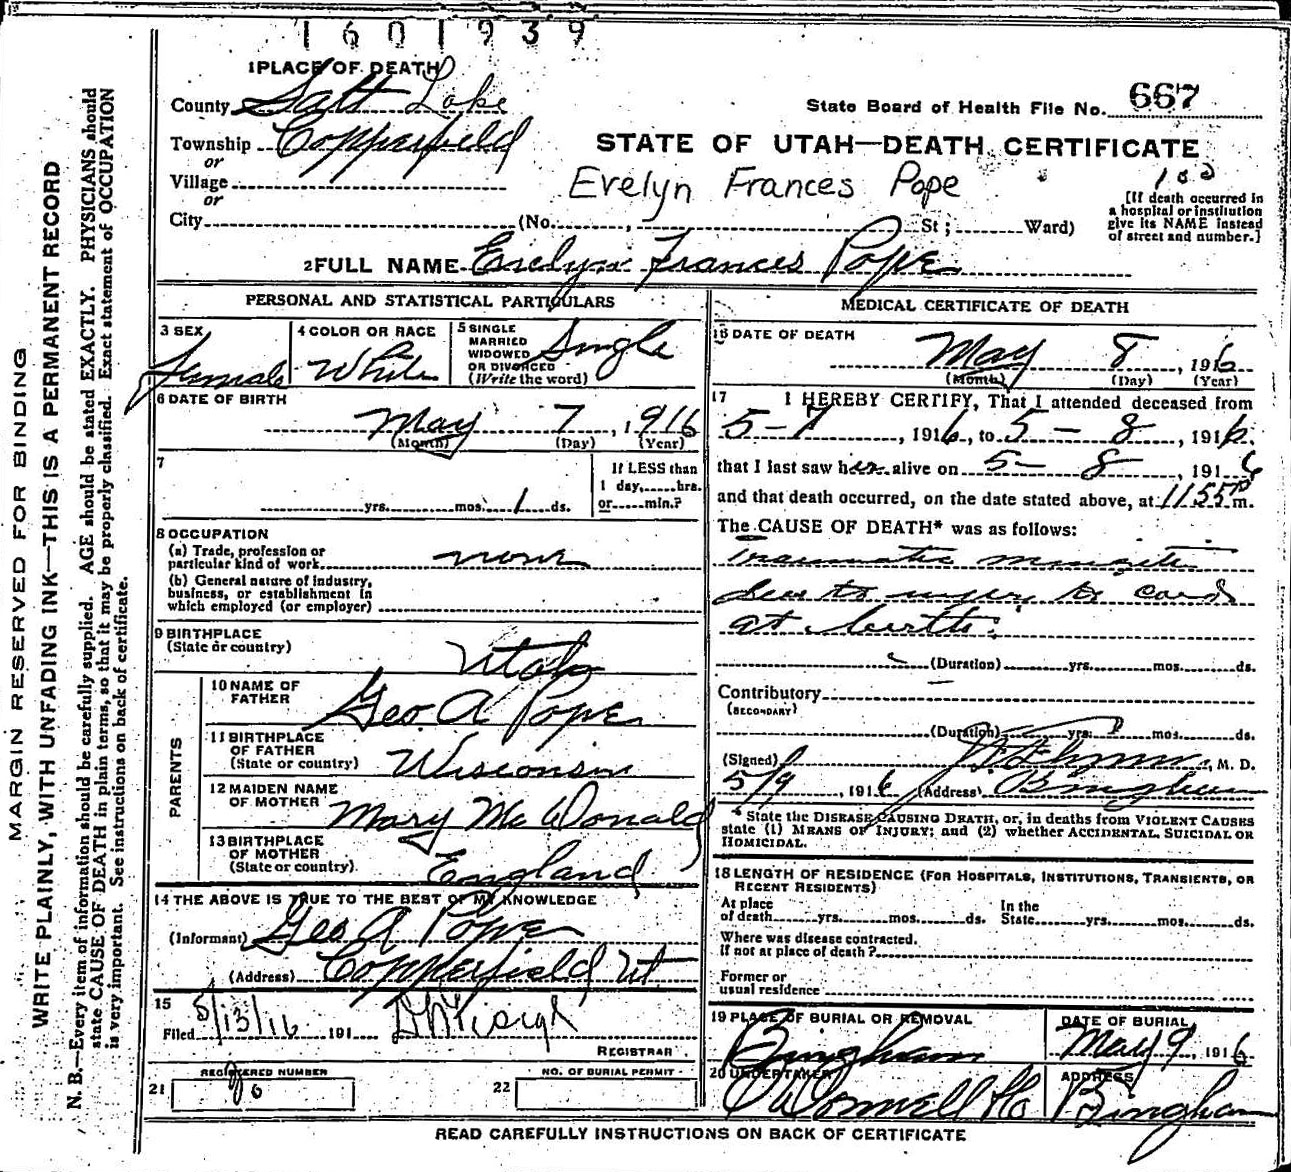 1601939
1 PLACE OF DEATH
County Salt Lake
State Board of Health File No. 667
Township Copperfield
or
Village
or
City (No. , St; Ward)
STATE OF UTAH—DEATH CERTIFICATE
Evelyn Frances Pope
[If death occurred in
a hospital or institution
give its NAME instead
of street and number.]
2 FULL NAME Evelyn Frances Pope
PERSONAL AND STATISTICAL PARTICULARS
3 SEX
Female
4 COLOR OR RACE
White
5 SINGLE
MARRIED
WIDOWED
OR DIVORCED
(Write the word)
Single
6 DATE OF BIRTH
May 7, 1916
(Month) (Day) (Year)
7
yrs. mos. 1 ds.
If LESS than
1 day, hrs.
or min.?
8 OCCUPATION
(a) Trade, profession or
particular kind of work none
(b) General nature of industry,
business, or establishment in
which employed (or employer)
9 BIRTHPLACE
(State or country)
Utah
PARENTS
10 NAME OF
FATHER
Geo. A Pope
11 BIRTHPLACE
OF FATHER
(State or country)
Wisconsin
12 MAIDEN NAME
OF MOTHER
Mary McDonald
13 BIRTHPLACE
OF MOTHER
(State or country)
England
14 THE ABOVE IS TRUE TO THE BEST OF MY KNOWLEDGE
(Informant) Geo A Pope
(Address) Copperfield Ut
15
Filed 5/13/16 191
REGISTRAR
21 REGISTERED NUMBER
22 NO. OF BURIAL PERMIT
MEDICAL CERTIFICATE OF DEATH
16 DATE OF DEATH
May 8, 1916
(Month) (Day) (Year)
17 I HEREBY CERTIFY, That I attended deceased from
5-7, 1916, to 5-8, 1916.
that I last saw her alive on 5-8, 1916
and that death occurred, on the date stated above, at 11:55 P m.
The CAUSE OF DEATH* was as follows:
Traumatic
due to injury to cord
at birth.
(Duration) yrs. mos. ds.
Contributory
(SECONDARY)
(Duration) yrs. mos. ds.
(Signed) , M. D.
5/9, 1916 (Address) Bingham
* State the DISEASE CAUSING DEATH, or, in deaths from VIOLENT CAUSES
state (1) MEANS OF INJURY; and (2) whether ACCIDENTAL, SUICIDAL OR
HOMICIDAL.
18 LENGTH OF RESIDENCE (FOR HOSPITALS, INSTITUTIONS, TRANSIENTS, OR
RECENT RESIDENTS)
At place
of death yrs. mos. ds.
In the
State yrs. mos. ds.
Where was disease contracted,
if not at place of death?
Former or
usual residence
19 PLACE OF BURIAL OR REMOVAL
Bingham
DATE OF BURIAL
May 9, 1916
20 UNDERTAKER
O'Donnell & Co
ADDRESS
Bingham
READ CAREFULLY INSTRUCTIONS ON BACK OF CERTIFICATE
MARGIN RESERVED FOR BINDING
WRITE PLAINLY, WITH UNFADING INK—THIS IS A PERMANENT RECORD
N. B.—Every item of information should be carefully supplied. AGE should be stated EXACTLY. PHYSICIANS should
state CAUSE OF DEATH in plain terms, so that it may be properly classified. Exact statement of OCCUPATION
is very important. See instructions on back of certificate.